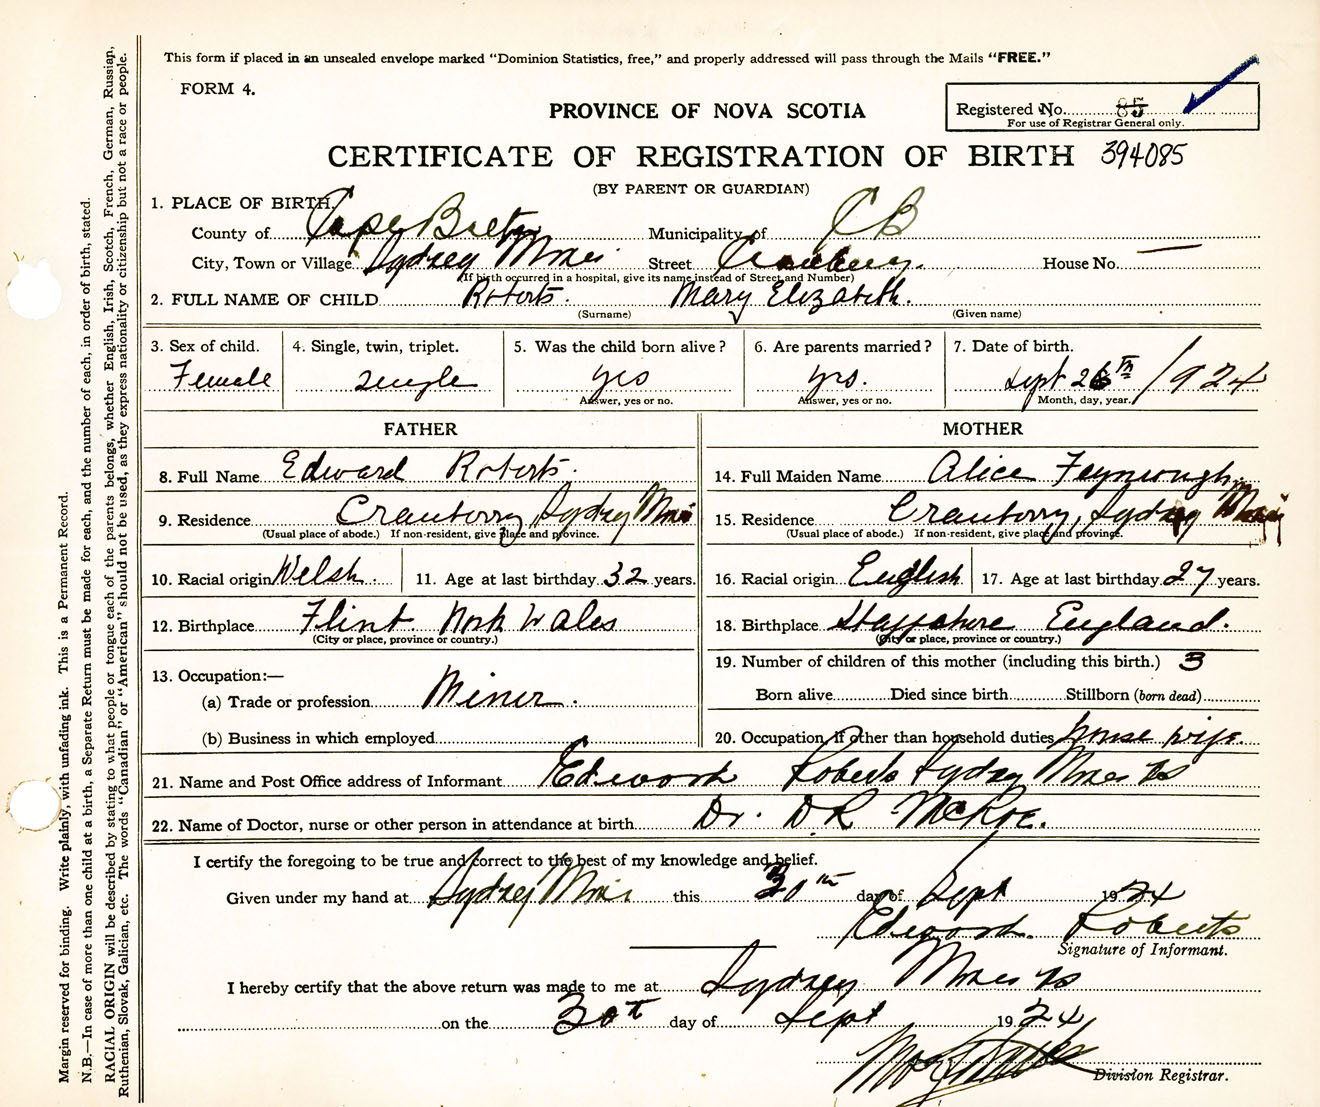 This form if placed in an unsealed envelope marked "Dominion Statistics, free," and properly addressed will pass through the Mails "FREE."
FORM 4.
PROVINCE OF NOVA SCOTIA
Registered No. 85
For use of Registrar General only.
CERTIFICATE OF REGISTRATION OF BIRTH 394085
(BY PARENT OR GUARDIAN)
1. PLACE OF BIRTH
County of Cape Breton Municipality of C B
City, Town or Village Sydney Mines Street Cranberry. House No. —
(If birth occurred in a hospital, give its name instead of Street and Number)
2. FULL NAME OF CHILD Roberts. Mary Elizabeth.
(Surname) (Given name)
3. Sex of child. 4. Single, twin, triplet. 5. Was the child born alive? 6. Are parents married? 7. Date of birth.
Female Single yes yes. Sept 26th / 1924
Answer, yes or no. Answer, yes or no. Month, day, year.
FATHER MOTHER
8. Full Name Edward Roberts. 14. Full Maiden Name Alice
9. Residence Cranberry, Sydney Mines 15. Residence Cranberry, Sydney Mines
(Usual place of abode.) If non-resident, give place and province. (Usual place of abode.) If non-resident, give place and province.
10. Racial origin Welsh. 11. Age at last birthday 32 years. 16. Racial origin English 17. Age at last birthday 27 years.
12. Birthplace Flint North Wales 18. Birthplace England.
(City or place, province or country.) (City or place, province or country.)
13. Occupation:— 19. Number of children of this mother (including this birth.) 3
(a) Trade or profession Miner. Born alive Died since birth Stillborn (born dead)
(b) Business in which employed 20. Occupation if other than household duties house wife.
21. Name and Post Office address of Informant Edward Roberts Sydney Mines NS
22. Name of Doctor, nurse or other person in attendance at birth Dr. D.R McRae.
I certify the foregoing to be true and correct to the best of my knowledge and belief.
Given under my hand at Sydney Mines this 30th day of Sept 1924
Edward Roberts
Signature of Informant.
I hereby certify that the above return was made to me at Sydney Mines NS
on the 30th day of Sept 1924
Division Registrar.
Margin reserved for binding. Write plainly, with unfading ink. This is a Permanent Record.
N.B.—In case of more than one child at a birth, a Separate Return must be made for each, and the number of each, in order of birth, stated.
RACIAL ORIGIN will be described by stating to what people or tongue each of the parents belongs, whether English, Irish, Scotch, French, German, Russian,
Ruthenian, Slovak, Galician, etc. The words "Canadian" or "American" should not be used, as they express nationality or citizenship but not a race or people.